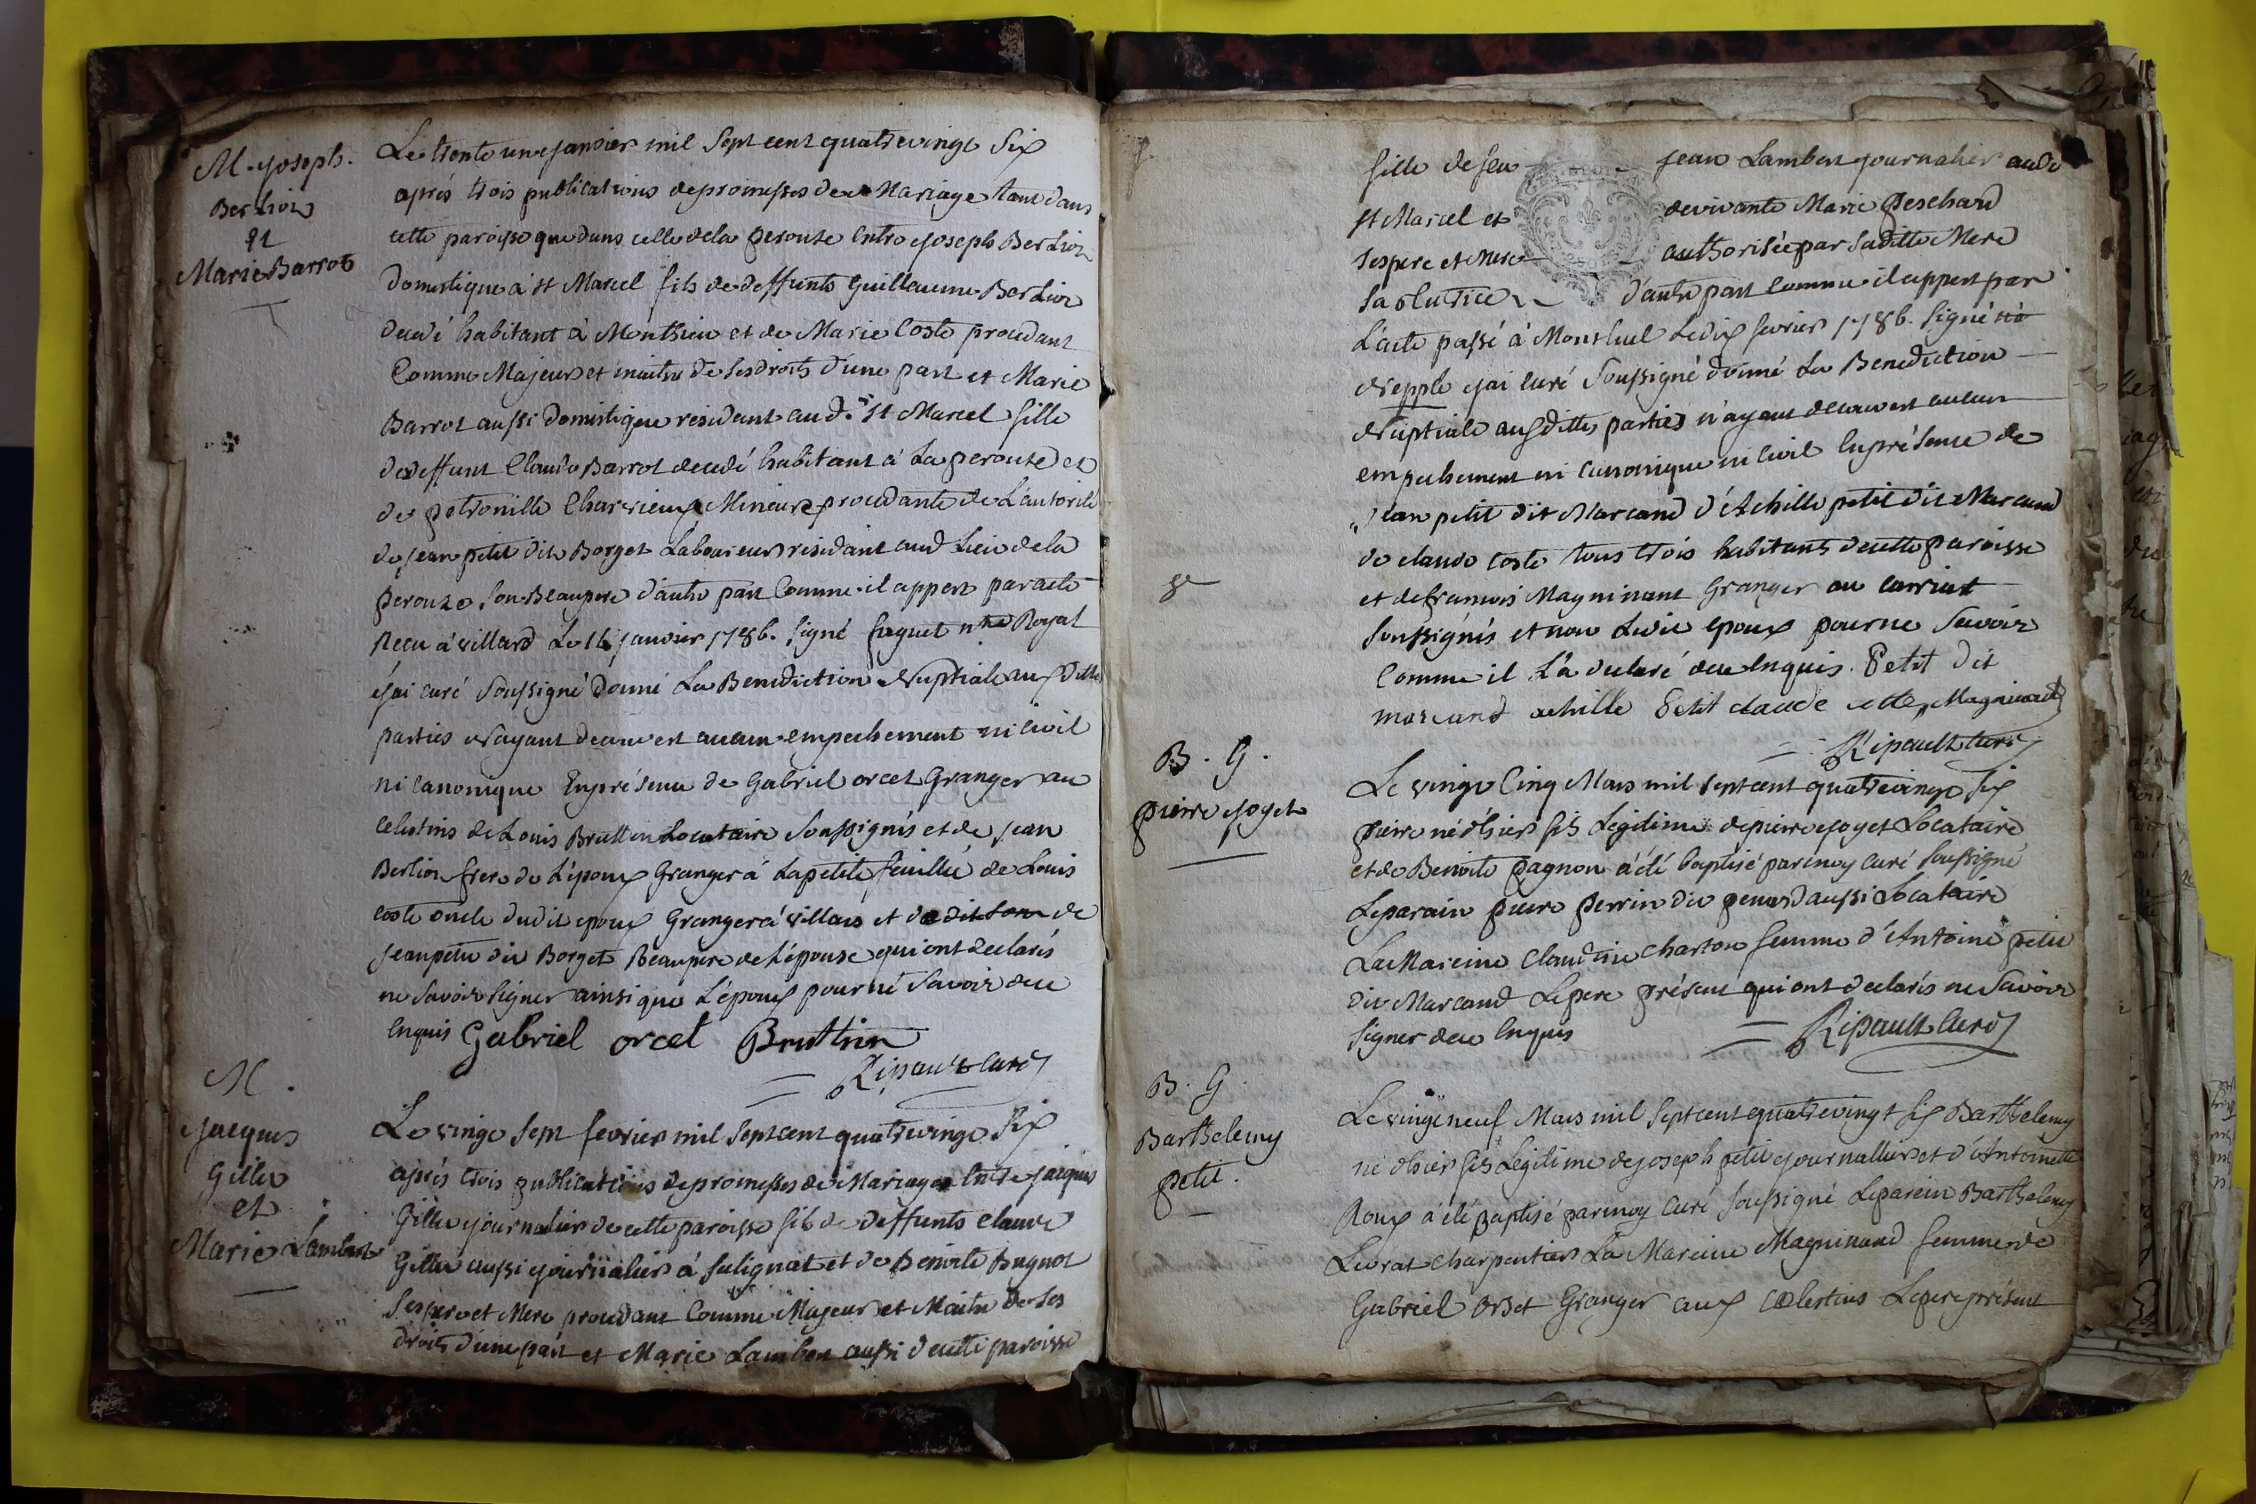 M. Joseph
Berlioz
et
Marie Barrot
Le trente un janvier mil sept cent quatrevingt Six
aprés trois publications de promesses de Mariage tant dans
cette paroisse que dans celle de la perouse Entre Joseph Berlioz
Domestique à st Marcel fils de deffunts Guillaume Berlioz
decedé habitant à Monthieu et de Marie Coste procedant
Comme Majeur et maitre de ses droits d'une part et Marie
Barrot aussi Domestique residant aud. st Marcel fille
de deffunt Claude Barrot decedé habitant à La perouse et
de petronille Charvieux Mineure procedante de L'autorité
de jean petit dit Borget Laboureur residant aud Lieu de la
perouze son Beaupere d'autre part Comme il appert par acte
Recu à villard Le 16 janvier 1786. signé n.re Royal
j'ai curé Soussigné Donné La Benediction Nuptiale aux dittes
parties N'ayant decouvert aucun empechement ni civil
ni canonique En présence de Gabriel orcet Granger au
celestins de Louis Bruttin Locataire Soussignés et de jean
Berlion frere de L'époux Granger à La petite feuillée de Louis
coste oncle dudit epoux Granger à villars et de dit son de
jean petit dit Borget Beaupere de L'épouse qui ont declarés
ne Savoir signer ainsi que L'époux pour ne Savoir de ce
Enquis Gabriel orcet Bruttin
Ripault Curé
M.
Jacques
Gillet
et
Marie Lambert
Le vingt sept fevrier mil sept cent quatrevingt Six
aprés trois publications de promesses de Mariage Entre Jacques
Gillet journalier de cette paroisse fils de deffunts Claude
Gillet aussi journalier à Sulignat et de Benoite Bugnot
Ses pere et Mere procedant Comme Majeur et Maitre de ses
droits d'une part et Marie Lambert aussi de cette paroisse
fille de feu jean Lambert journalier audt
st Marcel et de vivante Marie Peschard
ses pere et mere authorisée par sa ditte Mere
sa tutrice d'autre part Comme il appert par
L'acte passé à Montluel Le dix fevrier 1786. signé
j'ai curé Soussigné donné La Benediction
Nuptiale aux dittes parties n'ayant decouvert aucun
empechement ni canonique ni civil En présence de
jean petit dit Marcand d'Achille petit dit Marcand
de claude coste tous trois habitants de cette paroisse
et de francois Magninant Granger au
soussignés et non Ledit epoux pour ne Savoir
Comme il L'a declaré de ce Enquis. Petit dit
marcand achille Petit claude cotte, Magninand
Ripault Curé
B. G.
pierre Joyet
Le vingt Cinq Mars mil sept cent quatrevingt Six
pierre né d'hier fils Legitime de pierre Joyet Locataire
et de Benoite pagnon a été baptisé par moy Curé Soussigné
Le parain pierre perrin dit penard aussi Locataire
La Mareine Claudine Charton femme d'Antoine petit
dit Marcand Le pere présent qui ont declarés ne Savoir
signer de ce Enquis
Ripault Curé
B. G
Barthelemy
petit.
Le vingt neuf Mars mil sept cent quatrevingt six Barthelemy
né d'hier fils Legitime de joseph petit journallier et d'Antoinette
Roux a été Baptisé par moy Curé Soussigné Le parein Barthelemy
Levrat Charpentier La Mareine Magninand femme de
Gabriel Orset Granger aux celestins Le pere présent